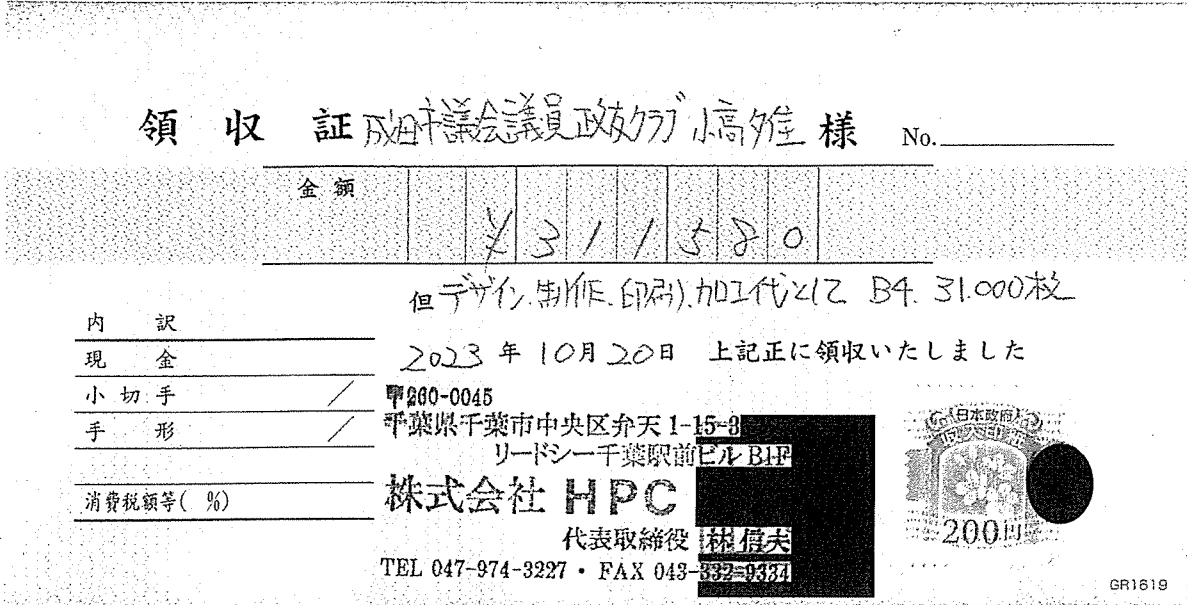 領収証 成田市議会議員政友クラブ 小高夕佳 様 No.
金額
¥311580
但 デザイン.制作.印刷.加工代として B4. 31.000枚
内訳
現金
2023年10月20日 上記正に領収いたしました
小切手 /
手形 /
消費税額等( %)
〒260-0045
千葉県千葉市中央区弁天1-15-3
リードシー千葉駅前ビル B1F
株式会社 HPC
代表取締役 林 信夫
TEL 047-974-3227・FAX 043-332-9334
日本政府
収入印紙
200円
GR1619